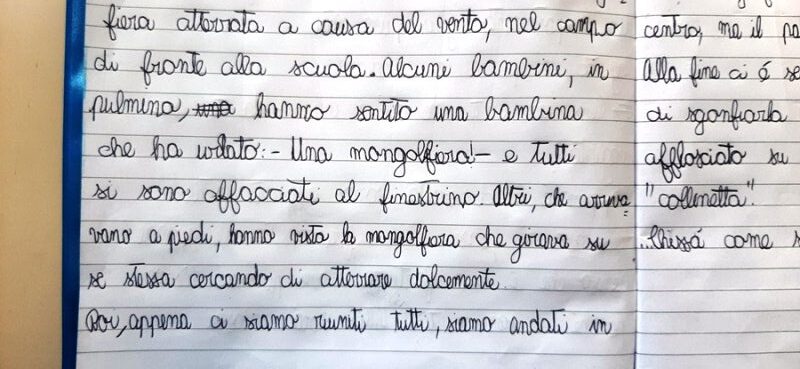 fiera atterrata a causa del vento, nel campo
di fronte alla scuola. Alcuni bambini, in
pulmino, hanno sentito una bambina
che ha urlato: - Una mongolfiera! - e tutti
si sono affacciati al finestrino. Altri, che arriva
vano a piedi, hanno vista la mongolfiera che girava su
se stessa cercando di atterrare dolcemente.
Poi, appena ci siamo riuniti tutti, siamo andati in
centro, ma il pa
Alla fine ci é se
di sgonfiarla
afflosciato su
"collinetta".
Chissá come s